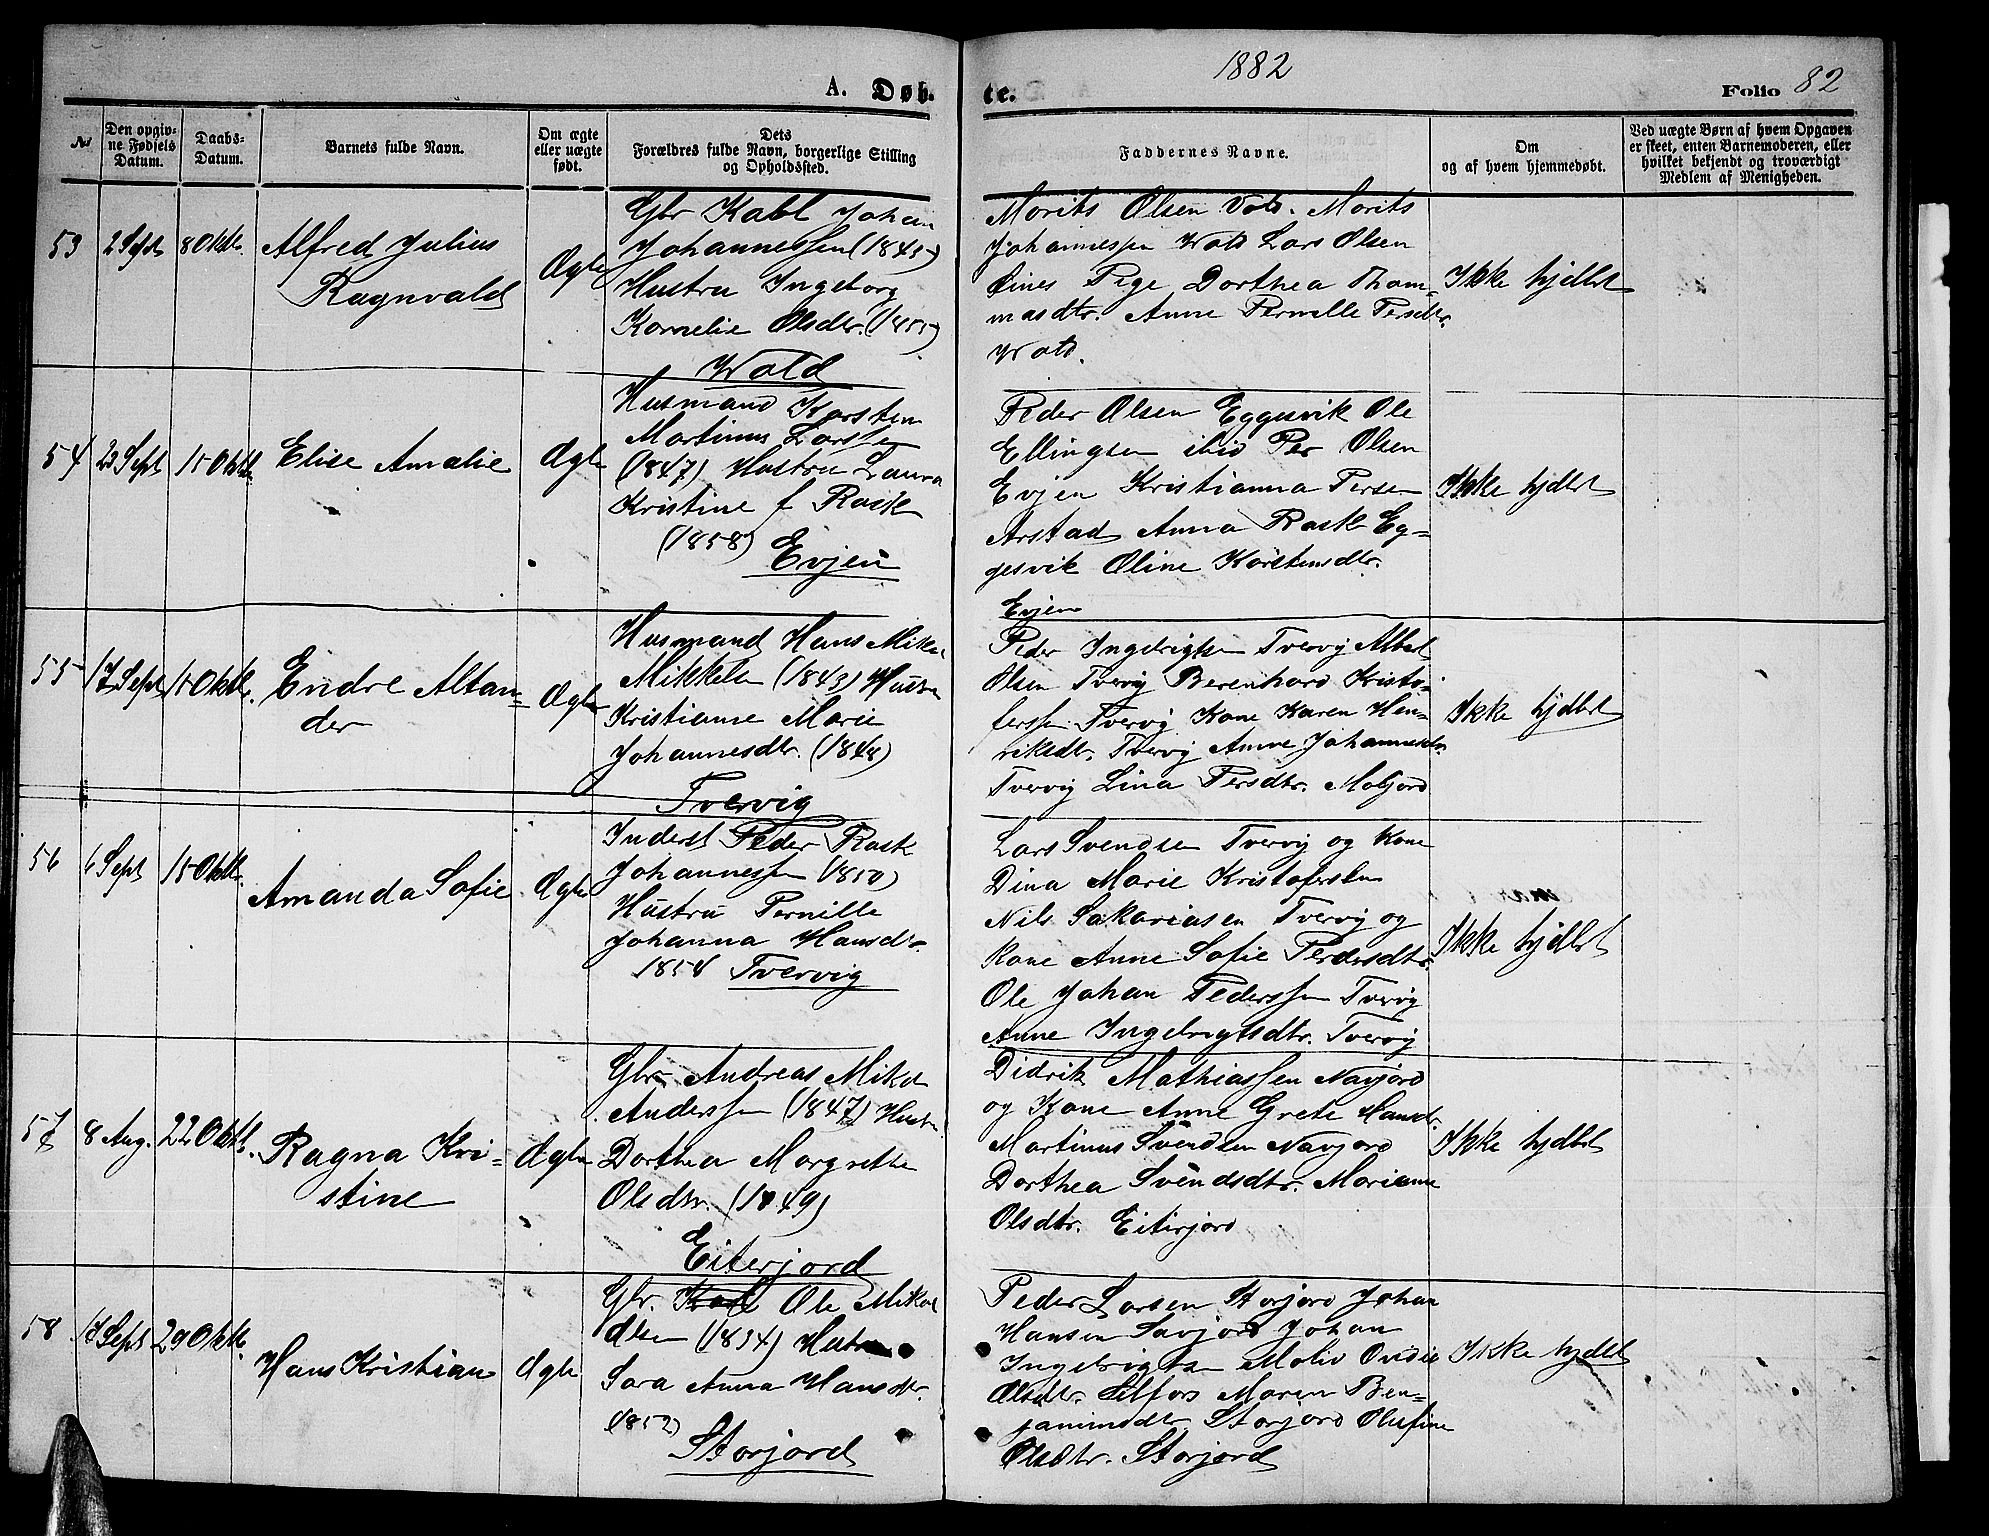 1882
A. Døb-
te.
Folio 82
No
Den opgiv-
ne Fødsels
Datum.
Daabs-
Datum.
Barnets fulde Navn.
Om ægte
eller uægte
født.
Dets
Forældres fulde Navn, borgerlige Stilling
og Opholdssted.
Faddernes Navne.
Om
og af hvem hjemmedøbt.
Ved uægte Børn af hvem Opgaven
er skeet, enten Barnemoderen, eller
hvilket bekjendt og troværdigt
Medlem af Menigheden.
53
2 Sept
8 Oktb.
Alfred Julius
Ragnvald
Ægte
Gbr Kabl Johan
Johannessen (1843)
Hustru Ingeborg
Kornelie Olsdtr. (1855)
Wold
Morits Olsen Vold. Morits
Johannessen Wold Lars Olsen
Øines Pige Dorthea Thom-
masdtr. Anne Pernille Persdtr.
Wold.
Ikke hjdbt
54
23 Sept
15 Oktb.
Elise Amalie
Ægte
Husmand Karsten
Martinus Larsen
(1847) Hustru Laura
Kristine f Rask
(1858)
Evjen
Peder Olsen Eggesvik Ole
Ellingsen ibid Per Olsen
Evjen Kristianna Persen
Arstad Anna Rask Eg-
gesvik Oline Karstensdtr.
Evjen
Ikke hjdbt
55
17 Sept
15 Oktb.
Endre Altan-
der
Ægte
Husmand Hans Mikal
Mikkelsen (1843) Hustru
Kristianne Marie
Johannesdtr. (1848)
Tvervig
Peder Ingebrigtsen Tvervig Albet
Olsen Tvervig Berenhard Kristo-
fersen Tvervig Kone Karen Hen-
rikedtr. Tvervig Anne Johannesdtr.
Tvervig Lina Persdtr. Moljord
Ikke hjdbt
56
6 Sept
15 Oktb.
Amanda Sofie
Ægte
Inderst Peder Rask
Johannessen (1850)
Hustru Pernille
Johanna Hansdtr
1854 Tvervig
Lars Svendsen Tvervig og Kone
Dina Marie Kristofersen
Nils Sakariasen Tvervig og
Kone Anne Sofie Pedersdtr.
Ole Johan Pederssen Tvervig
Anne Ingebrigtsdtr. Tvervig
Ikke hjdbt
57
8 Aug.
22 Oktb.
Ragna Kri-
stine
Ægte
Gbr Andreas Mikal
Anderssen (1847) Hustru
Dorthea Margrethe
Olsdtr. (1849)
Eiterjord
Didrik Mathiassen Navjord
og Kone Anne Grete Hansdtr.
Martinus Svendsen Navjord
Dorthea Svendsdtr. Marianne
Olsdtr. Eiterjord
Ikke hjdbt
58
17 Sept
29 Oktb.
Hans Kristian
Ægte
Gbr. Karl Ole Mikal
Olsen (1834) Hustru
Sara Anna Hansdtr.
(1852)
Storjord
Peder Larsen Storjord Johan
Hansen Savjord Johan
Ingebrigtsen Moliv
Olsdtr. Selfors Maren Ben-
jaminsdtr. Storjord Olufine
Olsdtr. Storjord
Ikke hjdbt